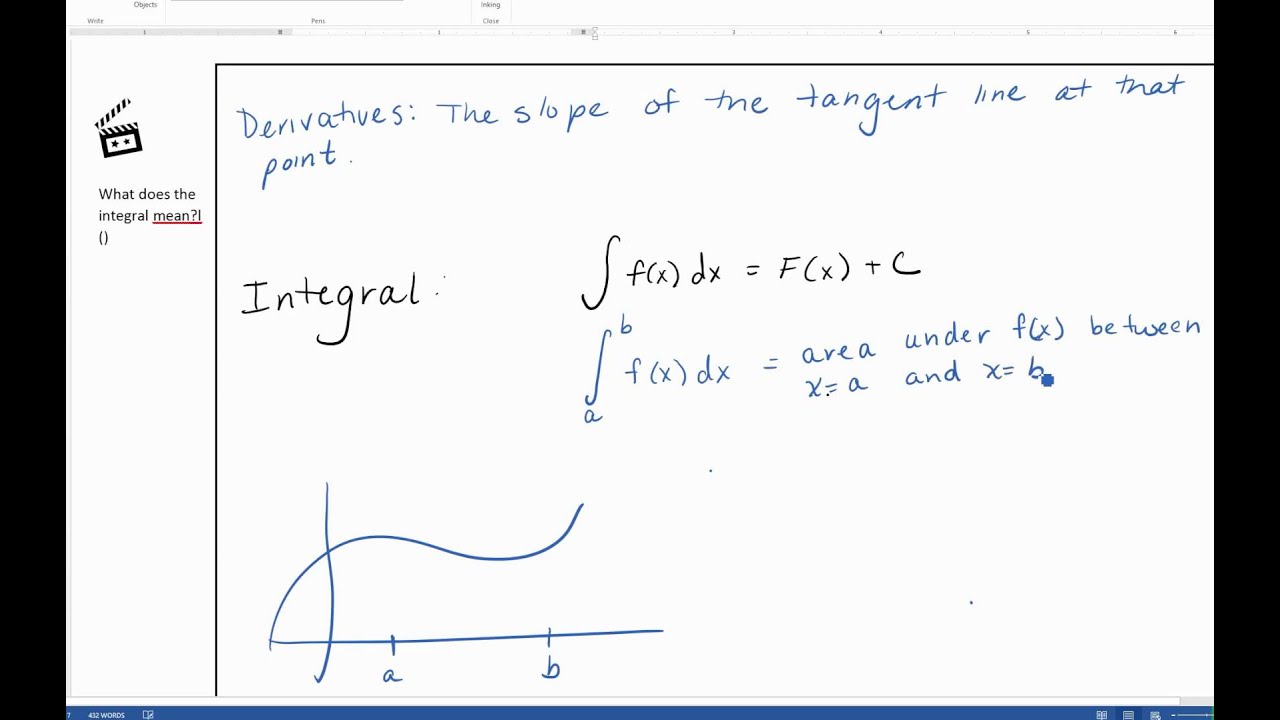 Objects
Inking
Write
Pens
Close
1
1
3
4
5
6
Derivatives: The slope of the tangent line at that
point.
What does the
integral mean?I
()
Integral:
∫ f(x) dx = F(x) + C
b
∫ f(x) dx = area under f(x) between
a
x = a and x = b
a
b
7
432 WORDS